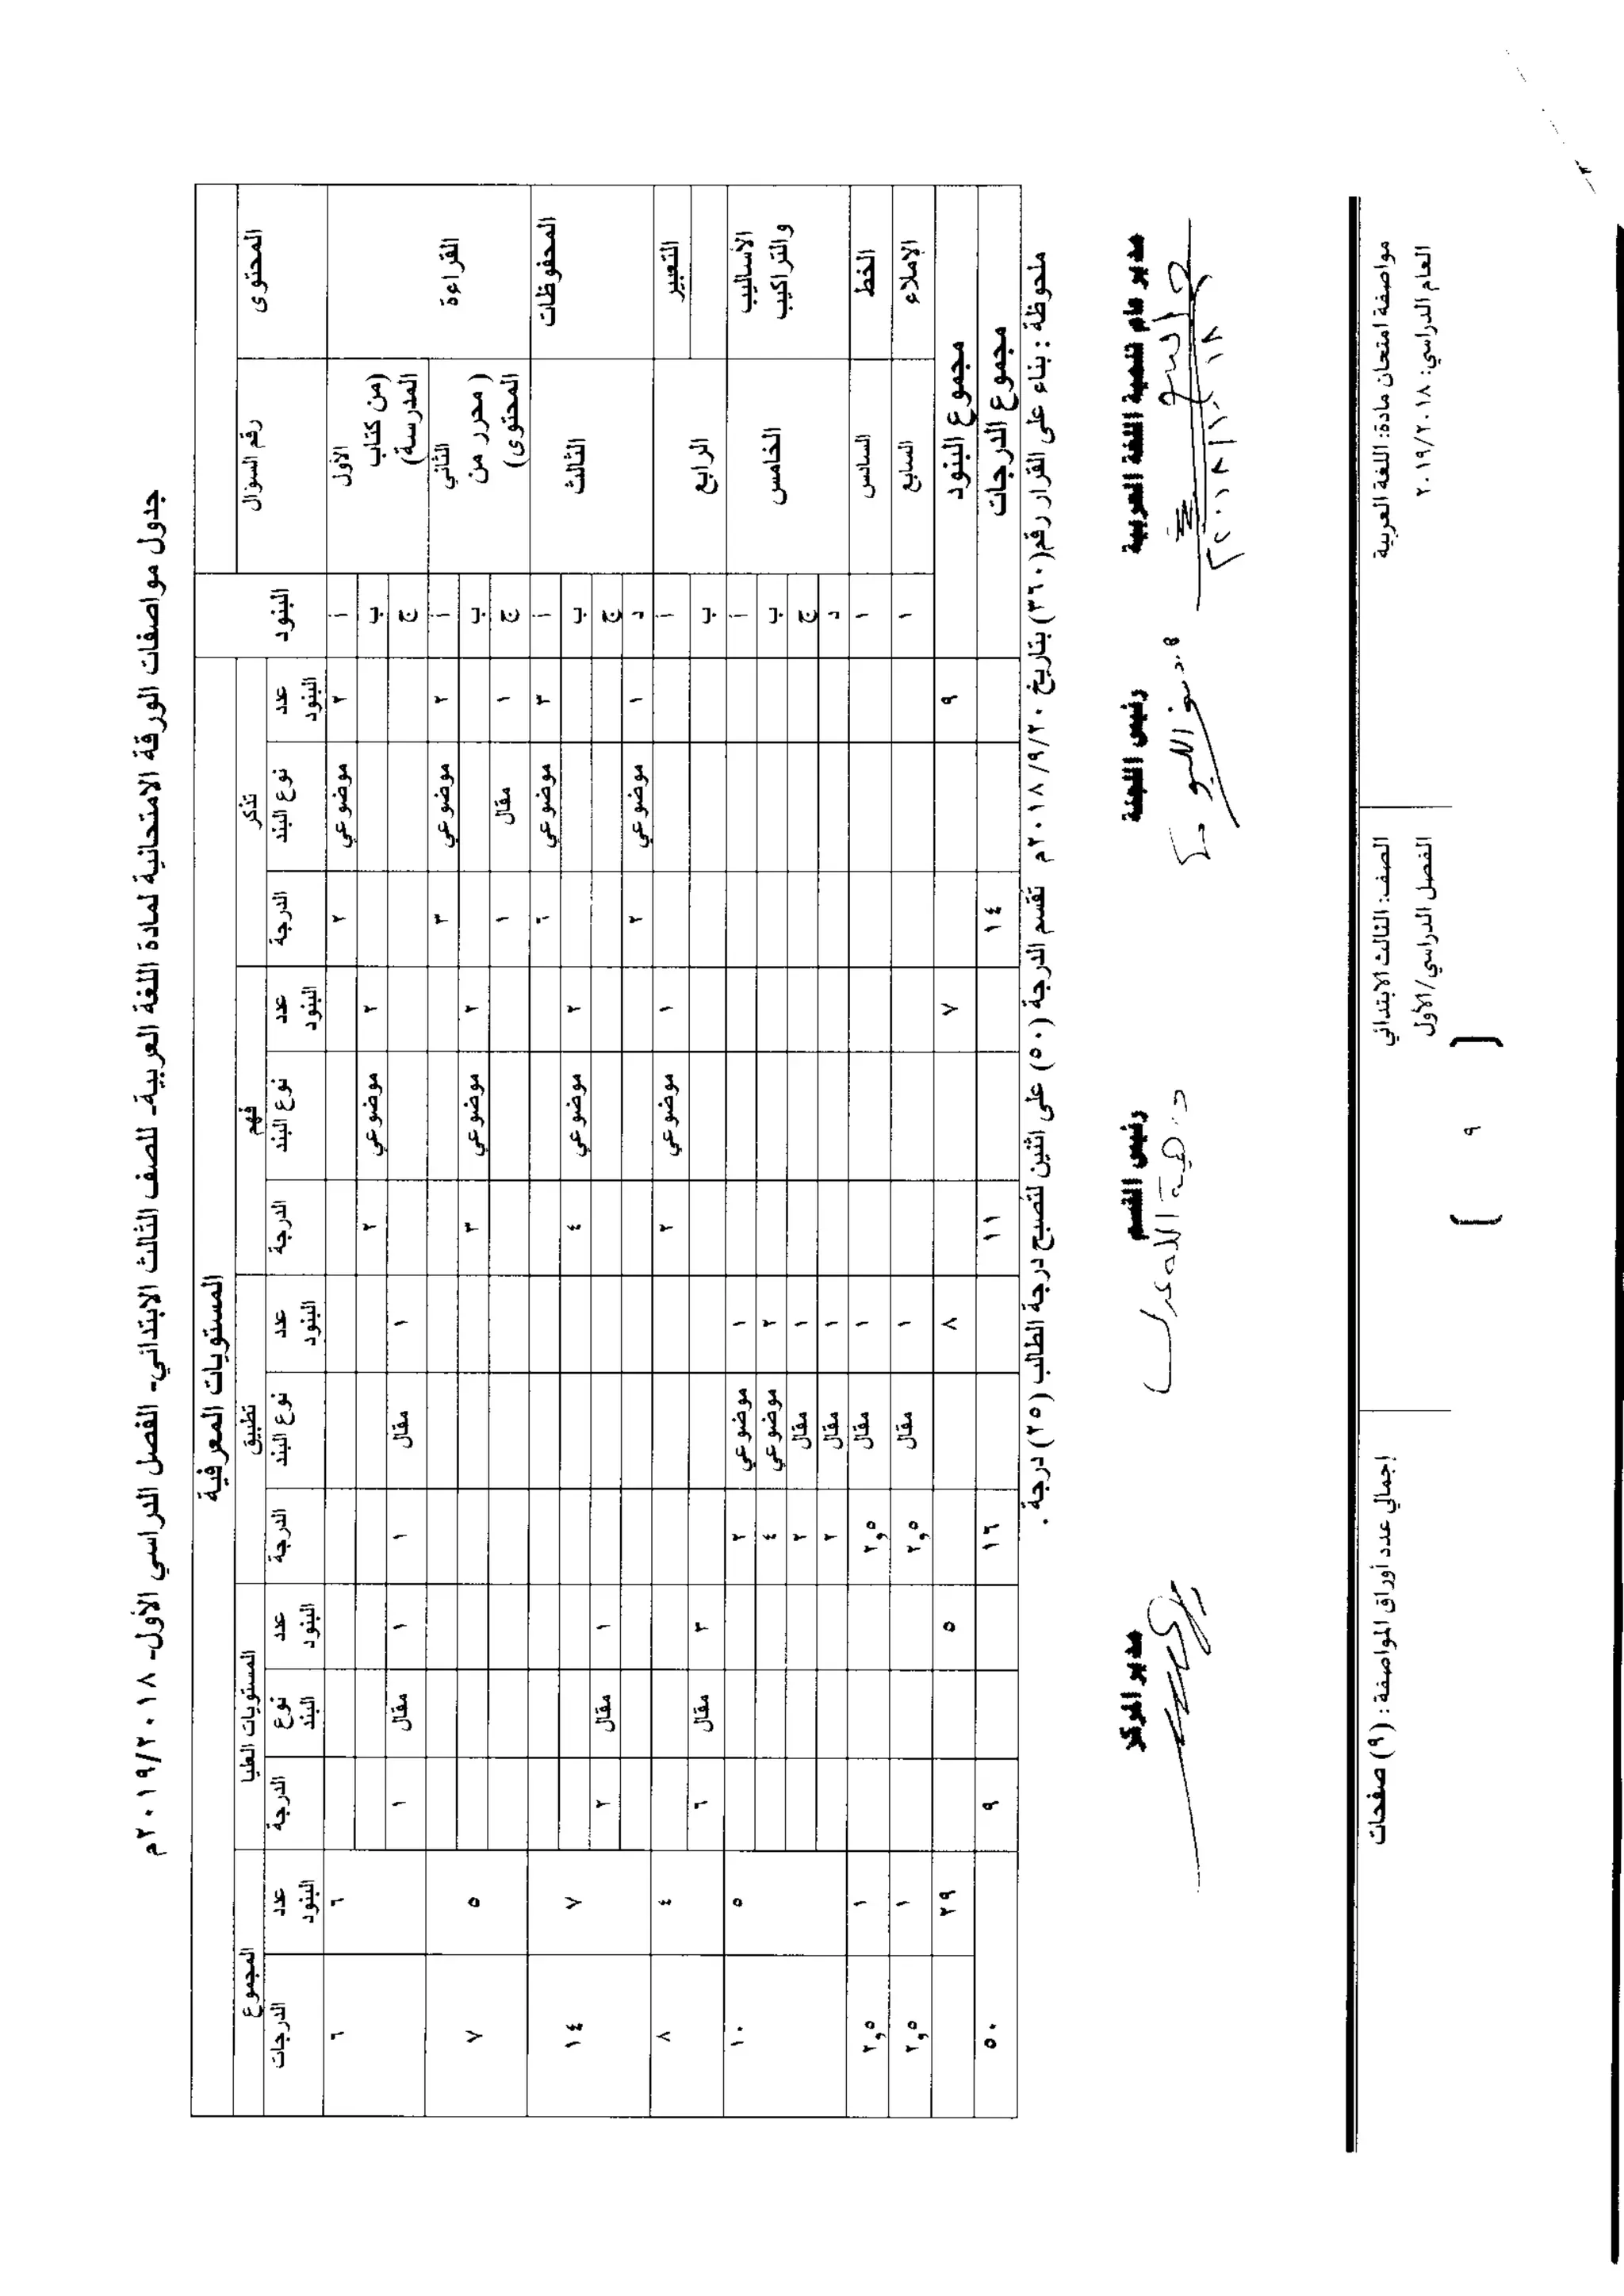 جدول مواصفات الورقة الامتحانية لمادة اللغة العربية- للصف الثالث الابتدائي- الفصل الدراسي الأول- ٢٠١٩/٢٠١٨م
المستويات المعرفية
المحتوى رقم السؤال البنود تذكر فهم تطبيق المستويات العليا المجموع
عدد البنود نوع البند الدرجة عدد البنود نوع البند الدرجة عدد البنود نوع البند الدرجة عدد البنود نوع البند الدرجة عدد البنود الدرجات
القراءة الأول (من كتاب المدرسة) أ ٢ موضوعي ٢ ٦ ٦
ب ٢ موضوعي ٢
ج ١ مقال ١ ١ مقال ١
الثاني (محرر من المحتوى) أ ٢ موضوعي ٣ ٥ ٧
ب ٢ موضوعي ٣
ج ١ مقال ١
المحفوظات الثالث أ ٣ موضوعي ٦ ٧ ١٤
ب ٢ موضوعي ٤
ج ١ مقال ٢
د ١ موضوعي ٢
التعبير الرابع أ ١ موضوعي ٢ ٤ ٨
ب ٣ مقال ٦
الأساليب والتراكيب الخامس أ ١ موضوعي ٢ ٥ ١٠
ب ٢ موضوعي ٤
ج ١ مقال ٢
د ١ مقال ٢
الخط السادس ١ ١ مقال ٢,٥ ١ ٢,٥
الإملاء السابع ١ ١ مقال ٢,٥ ١ ٢,٥
مجموع البنود ٩ ٧ ٨ ٥ ٢٩
مجموع الدرجات ١٤ ١١ ١٦ ٩ ٥٠
ملحوظة : بناء على القرار رقم(٣٦٠) بتاريخ ٢٠١٨/٩/٢٠م تقسم الدرجة (٥٠) على اثنين لتصبح درجة الطالب (٢٥) درجة .
مدير عام تنمية اللغة العربية رئيس اللجنة رئيس القسم مدير المركز
مواصفة امتحان مادة: اللغة العربية الصف: الثالث الابتدائي إجمالي عدد أوراق المواصفة: (٩) صفحات
العام الدراسي: ٢٠١٩/٢٠١٨ الفصل الدراسي/الأول
[ ٩ ]